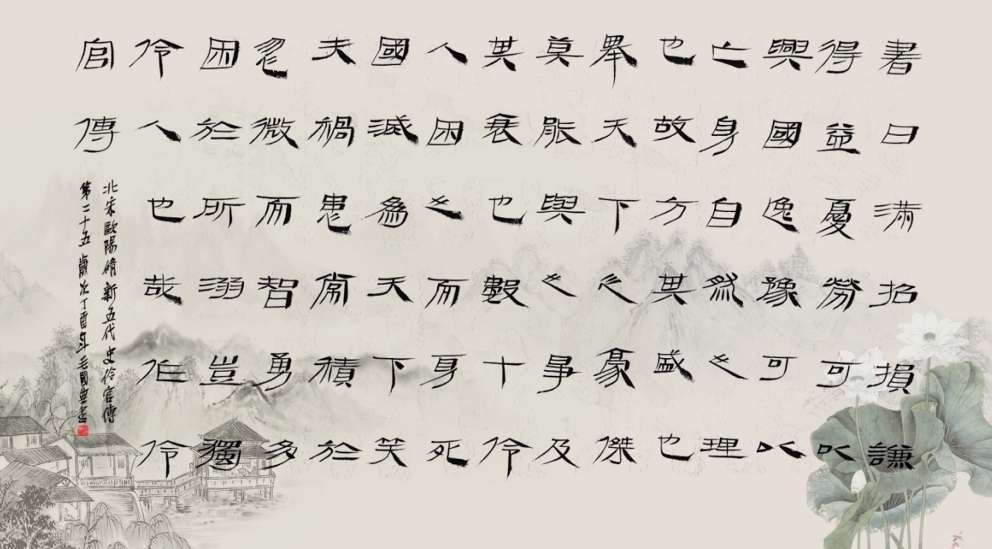 書曰滿招損謙
得益憂勞可以
興國逸豫可以
亡身自然之理
也故方其盛也
舉天下之豪傑
莫能與之爭及
其衰也數十伶
人困之而身死
國滅為天下笑
夫禍患常積於
忽微而智勇多
困於所溺豈獨
伶人也哉作伶
官傳
北宋歐陽脩新五代史伶官傳
第二十五 歲次丁酉年毛國典書